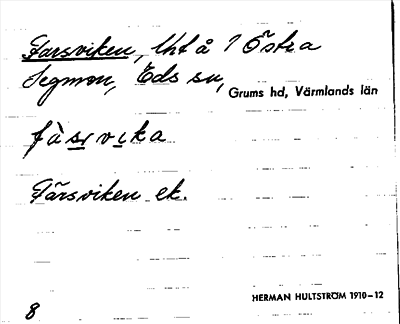 Farsviken, lht å 1 Östra
Segmon, Eds sn,
Grums hd, Värmlands län
fàsṟvi̱ka
Färsviken ek.
HERMAN HULTSTRÖM 1910–12
8